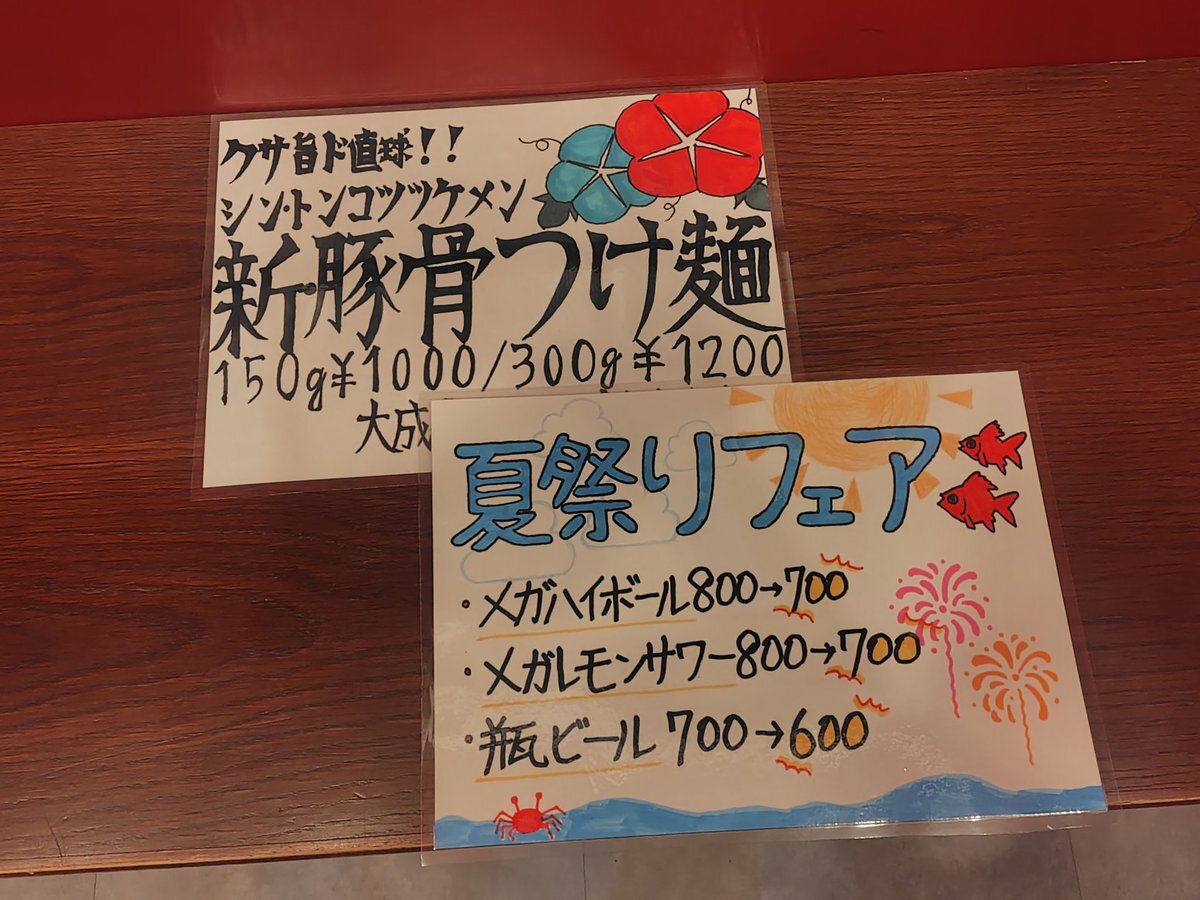 クサ旨ド直球!!
シン・トンコツツケメン
新・豚骨つけ麺
150g¥1000/300g¥1200
大成
夏祭りフェア
・メガハイボール800→700
・メガレモンサワー800→700
・瓶ビール 700→600